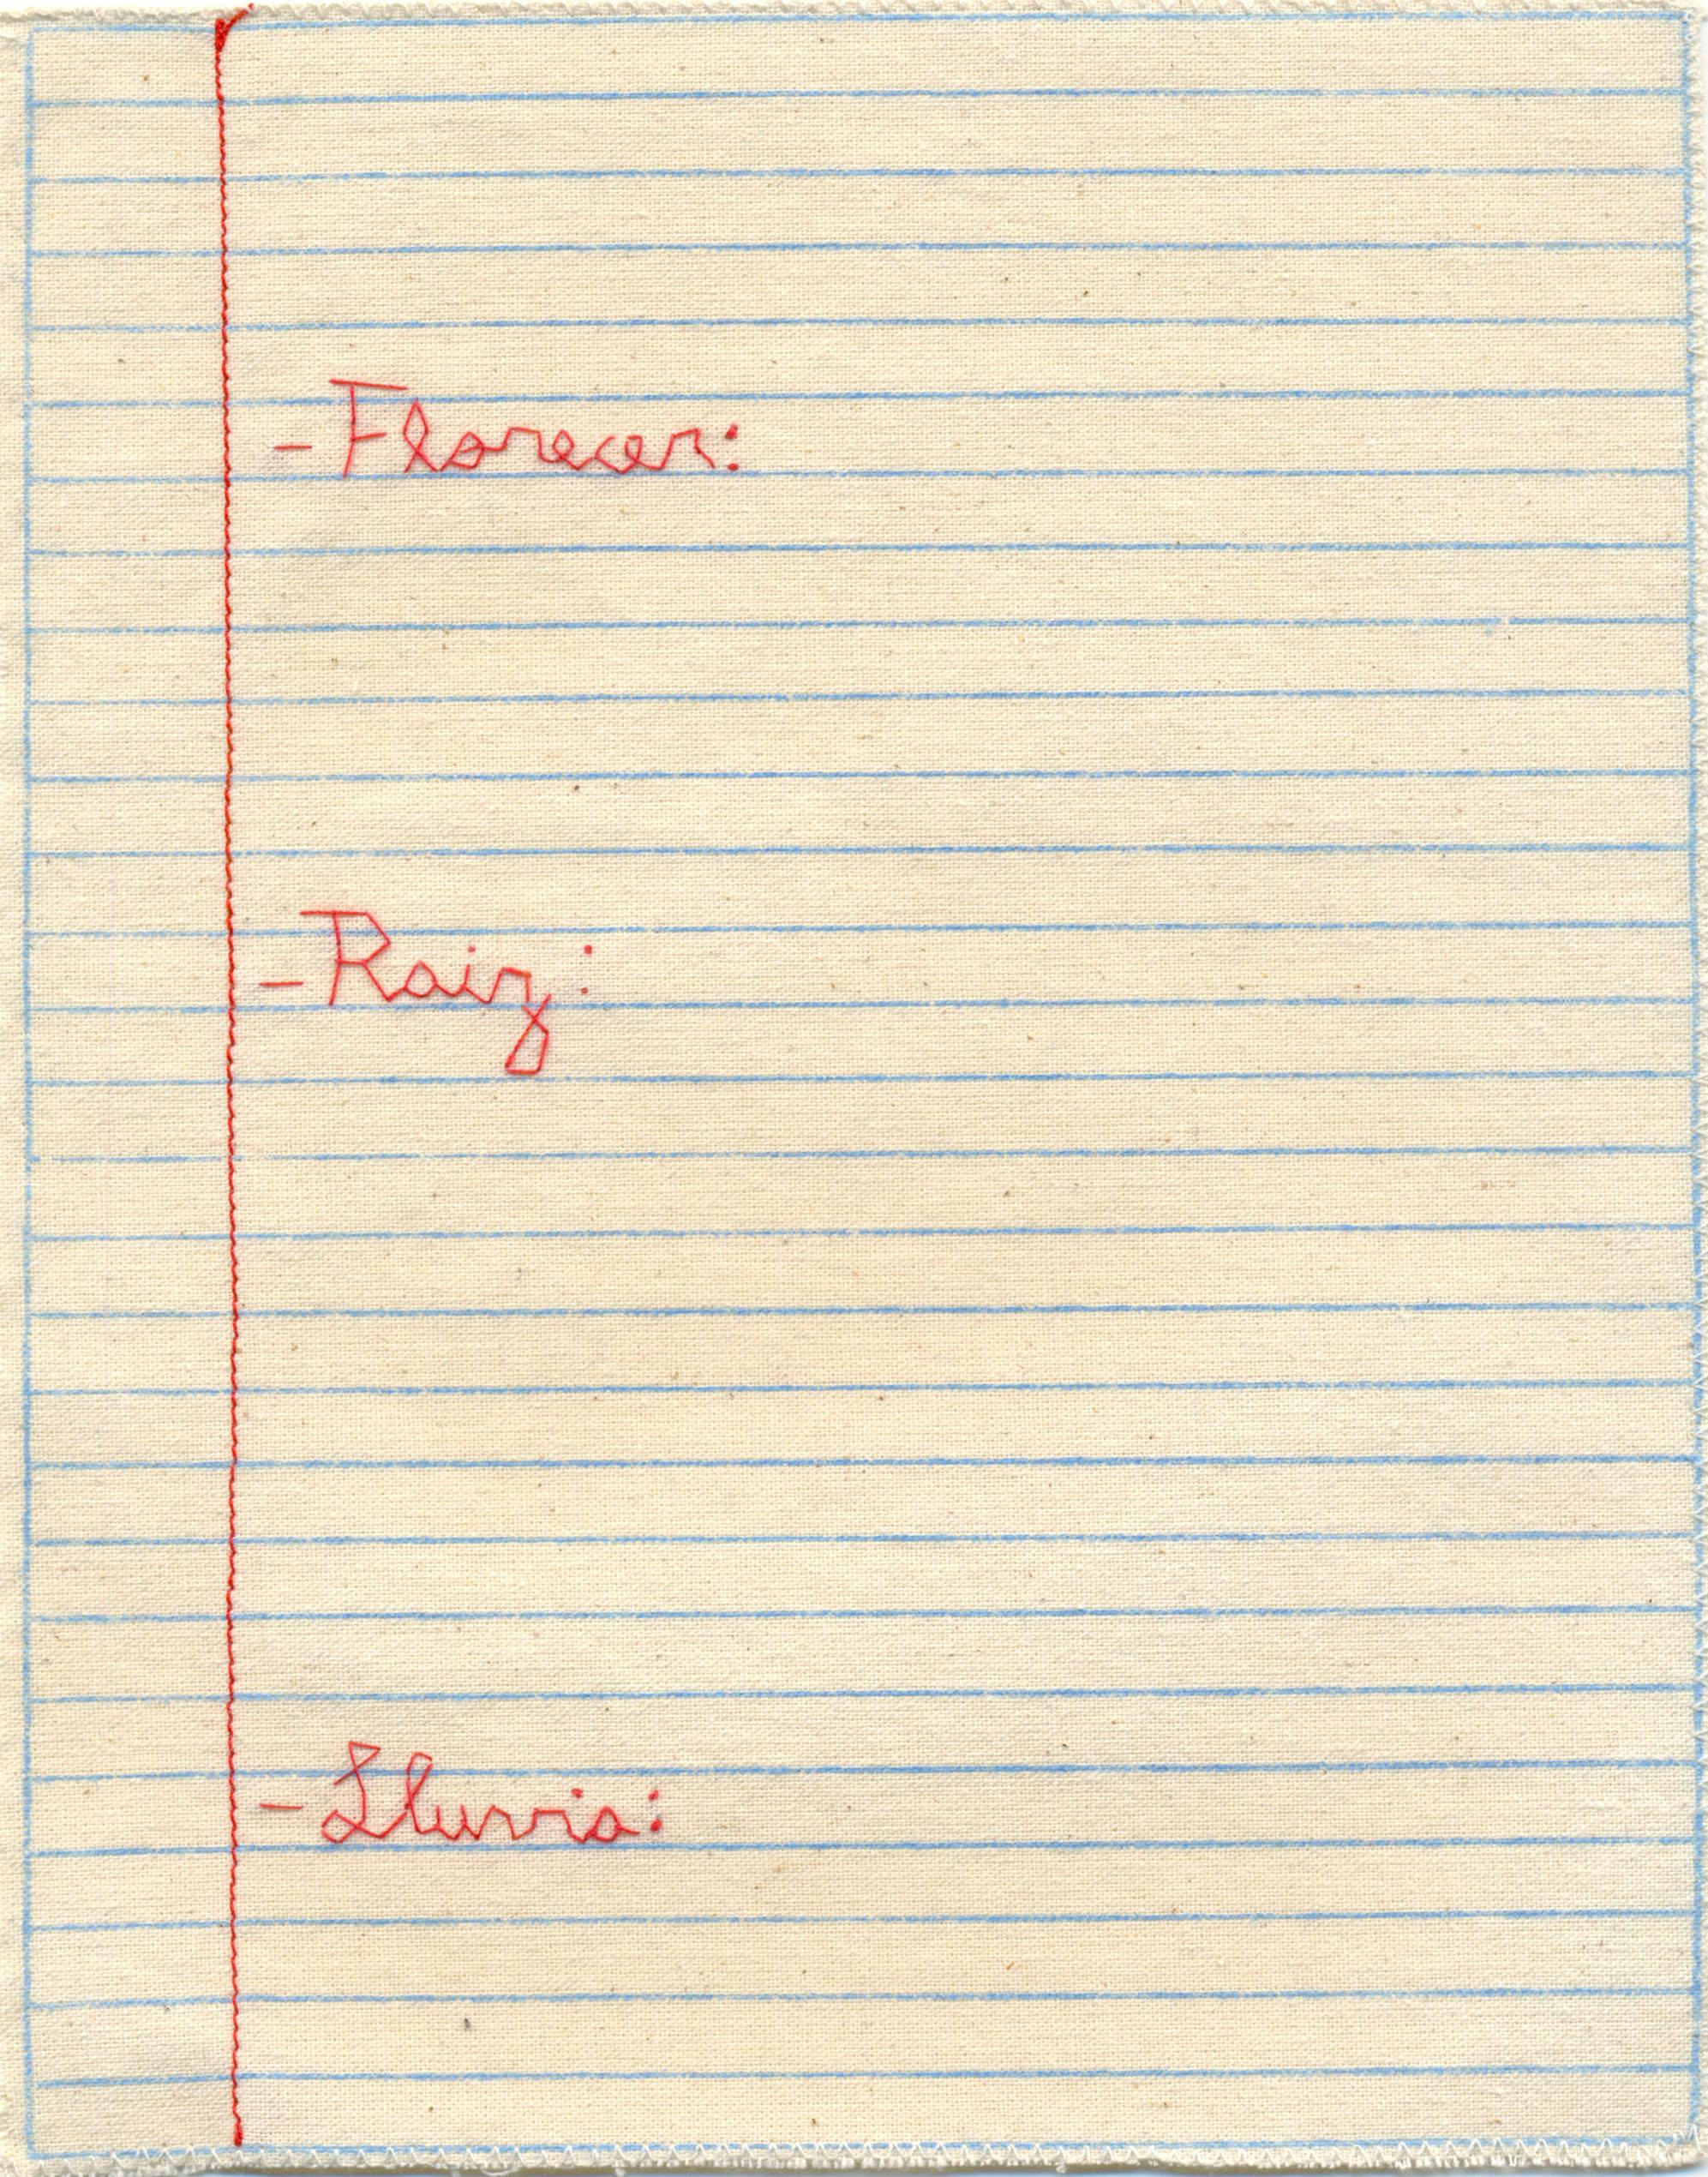 - Florecer:
- Raiz:
- Lluvia: